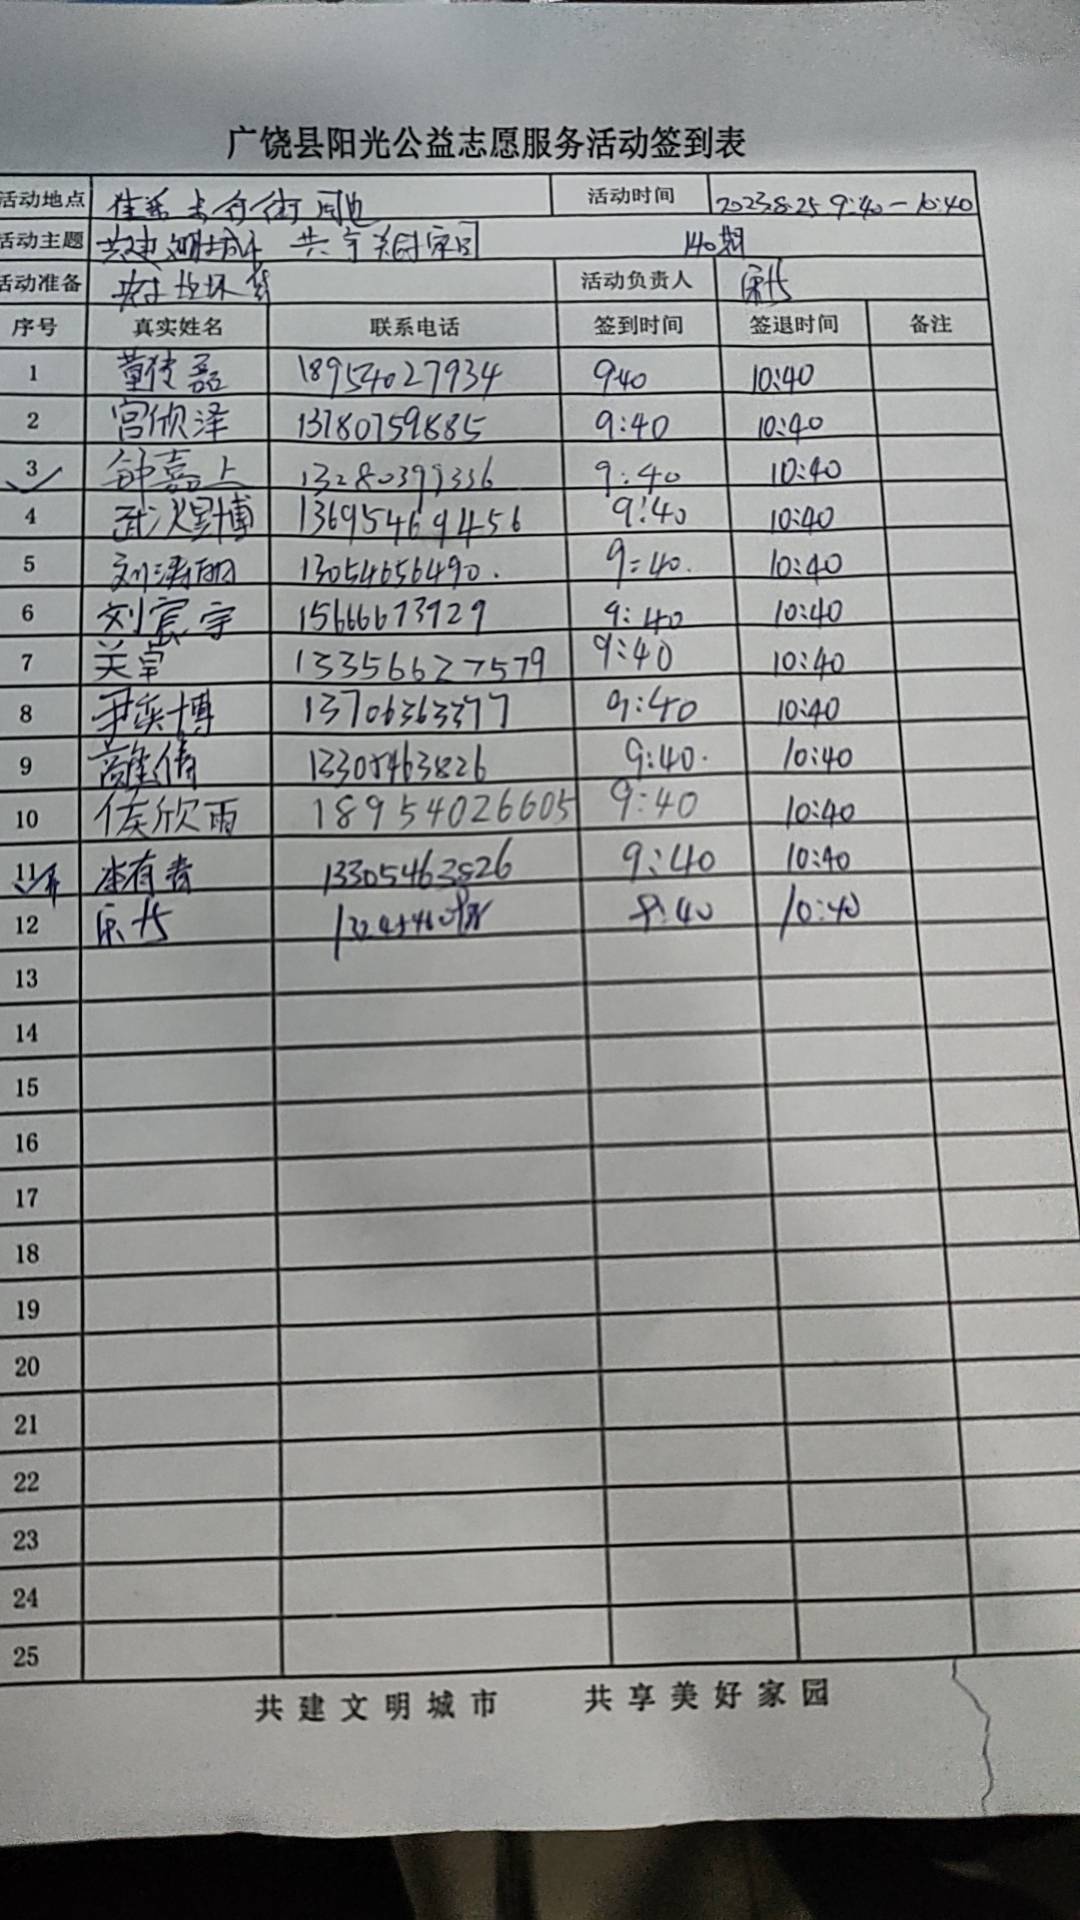 广饶县阳光公益志愿服务活动签到表
活动地点 活动时间 2023.8.25 9:40-10:40
活动主题 共建文明城市 共享美好家园 140期
活动准备 活动负责人
序号 真实姓名 联系电话 签到时间 签退时间 备注
1 董传磊 18954027934 9:40 10:40
2 宫欣泽 13780759885 9:40 10:40
3 钟嘉上 13280399336 9:40 10:40
4 武汶煜博 13695469456 9:40 10:40
5 13054656490. 9:40. 10:40
6 刘宸宇 15666673929 9:40 10:40
7 关卓 13356627579 9:40 10:40
8 尹奕博 13706363377 9:40 10:40
9 13305463826 9:40. 10:40
10 侯欣雨 18954026605 9:40 10:40
11 李有青 13305463826 9:40 10:40
12 8:40 10:40
13
14
15
16
17
18
19
20
21
22
23
24
25
共建文明城市 共享美好家园